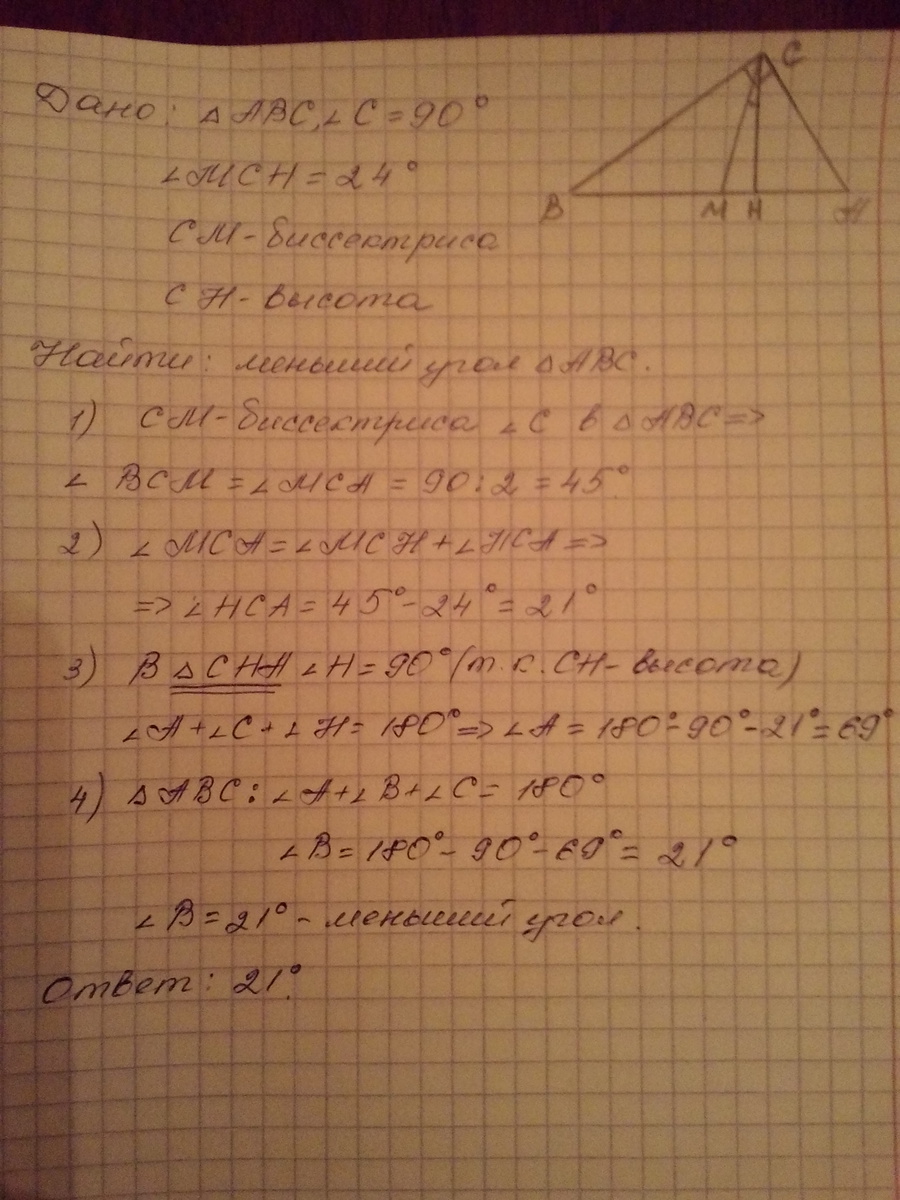 Дано: △ABC, ∠C = 90°
∠MCH = 24°
CM - биссектриса
CH - высота
C
B M H A
Найти: меньший угол △ABC.
1) CM - биссектриса ∠C в △ABC =>
∠ BCM = ∠MCA = 90 : 2 = 45°.
2) ∠MCA = ∠MCH + ∠HCA =>
=> ∠HCA = 45° - 24° = 21°
3) В △CHA ∠H = 90° (т.к. CH - высота)
∠A + ∠C + ∠H = 180° => ∠A = 180° - 90° - 21° = 69°
4) △ABC: ∠A + ∠B + ∠C = 180°
∠B = 180° - 90° - 69° = 21°
∠B = 21° - меньший угол.
Ответ: 21°.